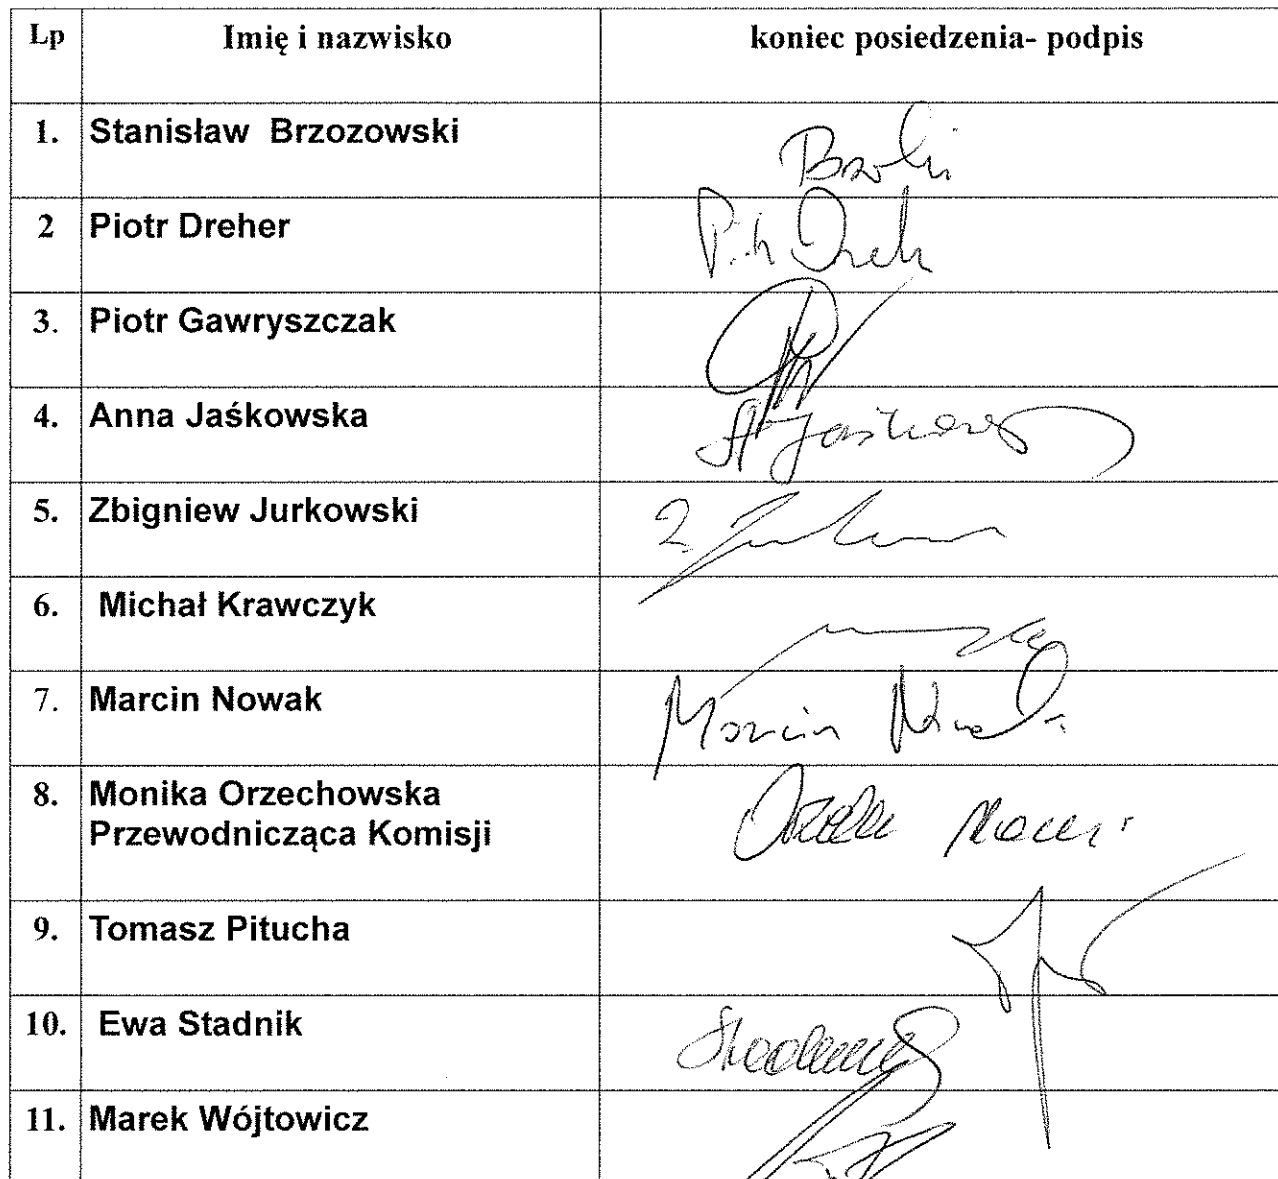 Lp Imię i nazwisko koniec posiedzenia- podpis
1. Stanisław Brzozowski
2 Piotr Dreher
3. Piotr Gawryszczak
4. Anna Jaśkowska
5. Zbigniew Jurkowski
6. Michał Krawczyk
7. Marcin Nowak Marcin Nowak
8. Monika Orzechowska
Przewodnicząca Komisji
9. Tomasz Pitucha
10. Ewa Stadnik
11. Marek Wójtowicz